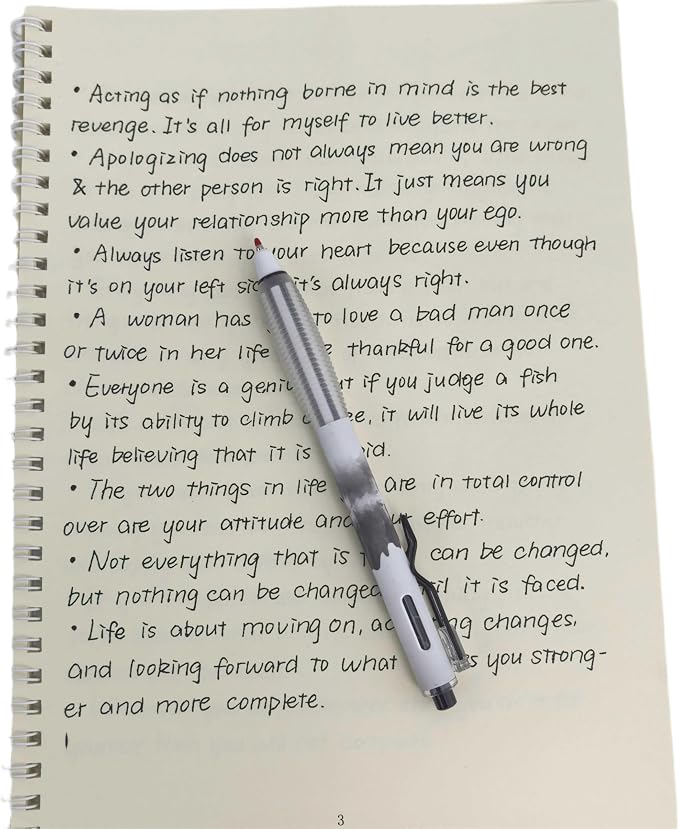 • Acting as if nothing borne in mind is the best
revenge. It's all for myself to live better.
• Apologizing does not always mean you are wrong
& the other person is right. It just means you
value your relationship more than your ego.
• Always listen to your heart because even though
it's on your left it's always right.
• A woman has to love a bad man once
or twice in her life thankful for a good one.
• Everyone is a if you judge a fish
by its ability to climb it will live its whole
life believing that it is
• The two things in life are in total control
over are your attitude and effort.
• Not everything that is can be changed,
but nothing can be changed it is faced.
• Life is about moving on, changes,
and looking forward to what you strong-
er and more complete.
3